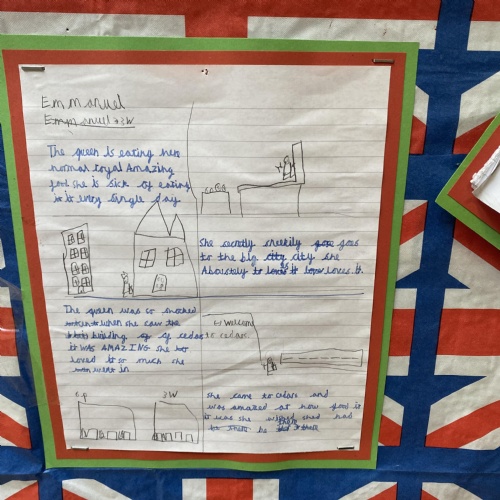 Emmanuel
Emmanuel 3W
The queen is eating here
normal royal Amazing
food she is sick of eating
it is every single day
She secretly sneekily gose goes
to the big citty city she
Aboulutely to loves it loves loves it.
The queen was so shocked
when she saw the
building of of cedars
it was AMAZING she
loved it so much she
went in
welcome
to cedars.
3W
she came to cedars and
was amazed at how good it
it was she wished shed had
to there be